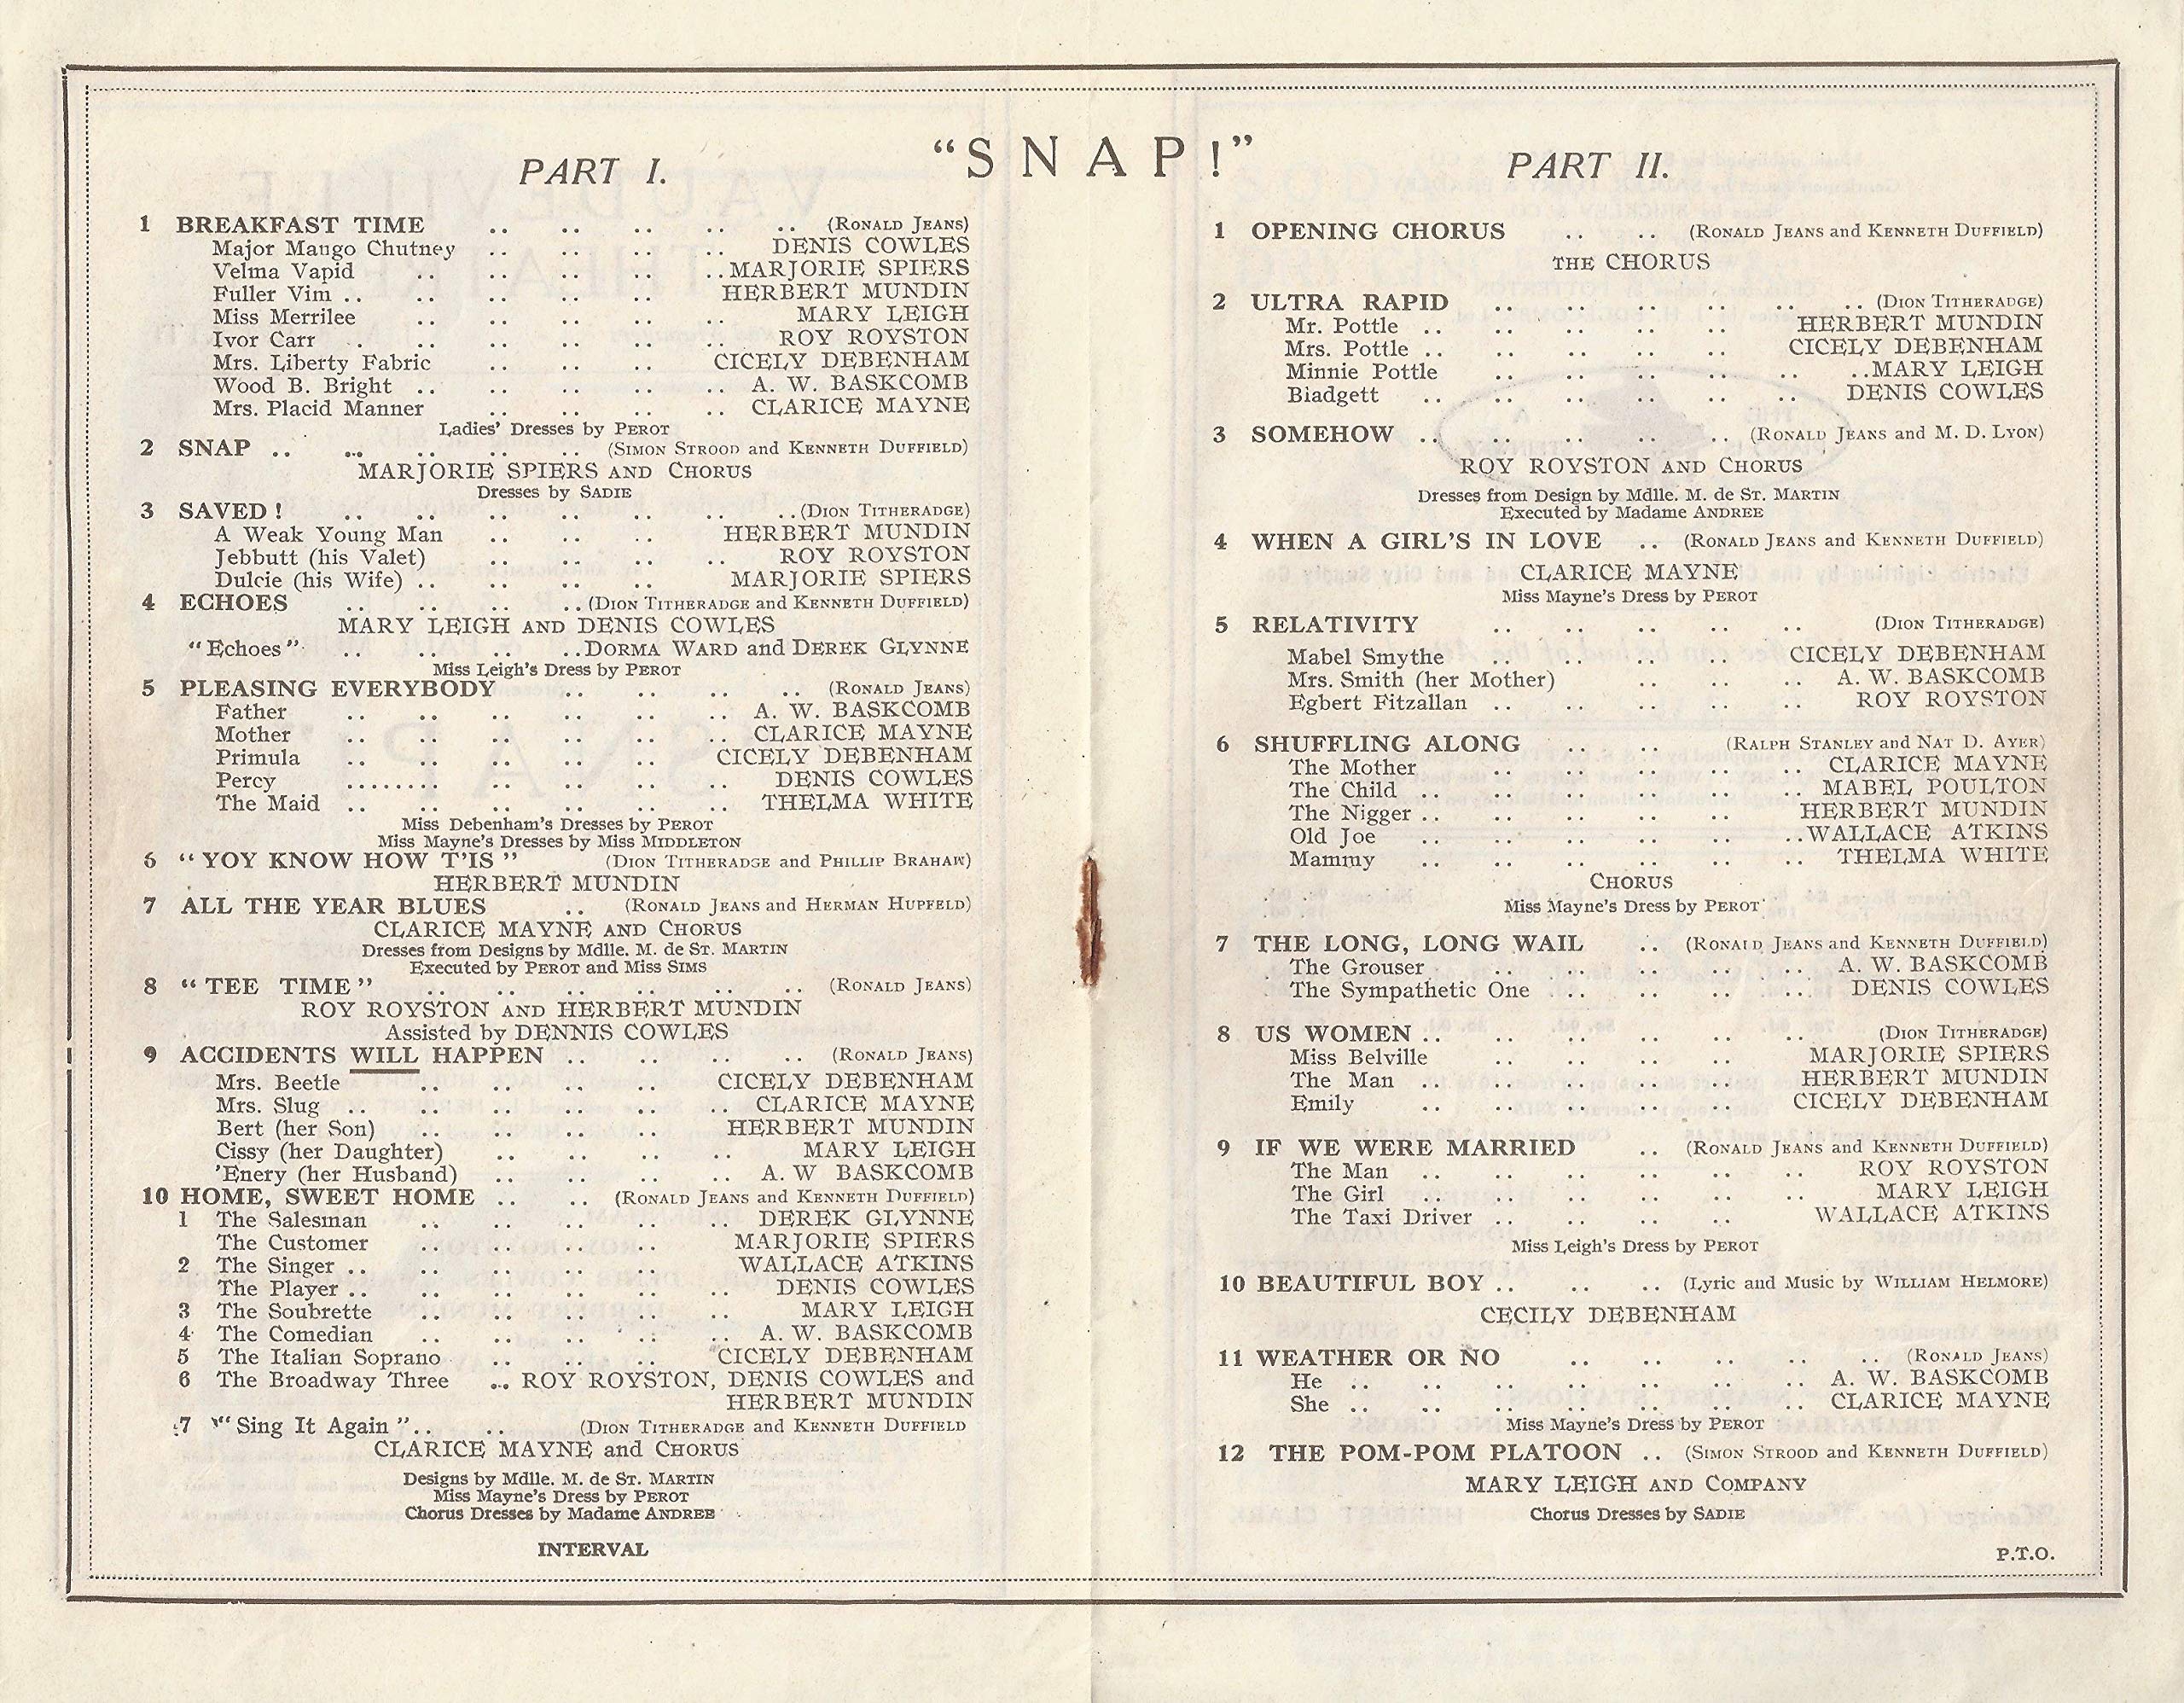 "SNAP!"
PART I.
1 BREAKFAST TIME .. .. .. .. .. (RONALD JEANS)
Major Mango Chutney .. .. .. .. DENIS COWLES
Velma Vapid .. .. .. .. .. MARJORIE SPIERS
Fuller Vim .. .. .. .. .. HERBERT MUNDIN
Miss Merrilee .. .. .. .. .. MARY LEIGH
Ivor Carr .. .. .. .. .. ROY ROYSTON
Mrs. Liberty Fabric .. .. .. CICELY DEBENHAM
Wood B. Bright .. .. .. .. .. A. W. BASKCOMB
Mrs. Placid Manner .. .. .. .. CLARICE MAYNE
Ladies' Dresses by PEROT
2 SNAP .. .. .. .. .. (SIMON STROOD and KENNETH DUFFIELD)
MARJORIE SPIERS AND CHORUS
Dresses by SADIE
3 SAVED! .. .. .. .. .. .. .. (DION TITHERADGE)
A Weak Young Man .. .. .. HERBERT MUNDIN
Jebbutt (his Valet) .. .. .. .. ROY ROYSTON
Dulcie (his Wife) .. .. .. .. MARJORIE SPIERS
4 ECHOES .. .. .. .. (DION TITHERADGE and KENNETH DUFFIELD)
MARY LEIGH AND DENIS COWLES
"Echoes" .. .. .. .. DORMA WARD and DEREK GLYNNE
Miss Leigh's Dress by PEROT
5 PLEASING EVERYBODY .. .. .. .. (RONALD JEANS)
Father .. .. .. .. .. .. A. W. BASKCOMB
Mother .. .. .. .. .. .. CLARICE MAYNE
Primula .. .. .. .. .. CICELY DEBENHAM
Percy ........ .. .. .. .. DENIS COWLES
The Maid .. .. .. .. .. .. THELMA WHITE
Miss Debenham's Dresses by PEROT
Miss Mayne's Dresses by Miss MIDDLETON
6 "YOY KNOW HOW T'IS" (DION TITHERADGE and PHILLIP BRAHAM)
HERBERT MUNDIN
7 ALL THE YEAR BLUES .. (RONALD JEANS and HERMAN HUPFELD)
CLARICE MAYNE AND CHORUS
Dresses from Designs by Mdlle. M. de ST. MARTIN
Executed by PEROT and Miss SIMS
8 "TEE TIME" .. .. .. .. .. .. (RONALD JEANS)
ROY ROYSTON AND HERBERT MUNDIN
Assisted by DENNIS COWLES
9 ACCIDENTS WILL HAPPEN .. .. .. .. (RONALD JEANS)
Mrs. Beetle .. .. .. .. CICELY DEBENHAM
Mrs. Slug .. .. .. .. .. .. CLARICE MAYNE
Bert (her Son) .. .. .. .. HERBERT MUNDIN
Cissy (her Daughter) .. .. .. .. MARY LEIGH
'Enery (her Husband) .. .. .. .. A. W BASKCOMB
10 HOME, SWEET HOME .. .. (RONALD JEANS and KENNETH DUFFIELD)
1 The Salesman .. .. .. .. .. DEREK GLYNNE
The Customer .. .. .. .. MARJORIE SPIERS
2 The Singer .. .. .. .. .. WALLACE ATKINS
The Player .. .. .. .. .. .. DENIS COWLES
3 The Soubrette .. .. .. .. .. MARY LEIGH
4 The Comedian .. .. .. .. .. A. W. BASKCOMB
5 The Italian Soprano .. .. .. CICELY DEBENHAM
6 The Broadway Three .. ROY ROYSTON, DENIS COWLES and
HERBERT MUNDIN
7 "Sing It Again" .. .. (DION TITHERADGE and KENNETH DUFFIELD
CLARICE MAYNE and CHORUS
Designs by Mdlle. M. de ST. MARTIN
Miss Mayne's Dress by PEROT
Chorus Dresses by Madame ANDREE
INTERVAL
PART II.
1 OPENING CHORUS .. .. (RONALD JEANS and KENNETH DUFFIELD)
THE CHORUS
2 ULTRA RAPID .. .. .. .. .. .. (DION TITHERADGE)
Mr. Pottle .. .. .. .. .. HERBERT MUNDIN
Mrs. Pottle .. .. .. .. .. CICELY DEBENHAM
Minnie Pottle .. .. .. .. .. .. MARY LEIGH
Biadgett .. .. .. .. .. .. DENIS COWLES
3 SOMEHOW .. .. .. .. .. (RONALD JEANS and M. D. LYON)
ROY ROYSTON AND CHORUS
Dresses from Design by Mdlle. M. de ST. MARTIN
Executed by Madame ANDREE
4 WHEN A GIRL'S IN LOVE .. (RONALD JEANS and KENNETH DUFFIELD)
CLARICE MAYNE
Miss Mayne's Dress by PEROT
5 RELATIVITY .. .. .. .. .. (DION TITHERADGE)
Mabel Smythe .. .. .. .. CICELY DEBENHAM
Mrs. Smith (her Mother) .. .. .. A. W. BASKCOMB
Egbert Fitzallan .. .. .. .. .. ROY ROYSTON
6 SHUFFLING ALONG .. .. (RALPH STANLEY and NAT D. AYER)
The Mother .. .. .. .. .. CLARICE MAYNE
The Child .. .. .. .. .. .. MABEL POULTON
The Nigger .. .. .. .. .. HERBERT MUNDIN
Old Joe .. .. .. .. .. .. WALLACE ATKINS
Mammy .. .. .. .. .. .. THELMA WHITE
CHORUS
Miss Mayne's Dress by PEROT
7 THE LONG, LONG WAIL .. (RONALD JEANS and KENNETH DUFFIELD)
The Grouser .. .. .. .. .. A. W. BASKCOMB
The Sympathetic One .. .. .. ... DENIS COWLES
8 US WOMEN .. .. .. .. .. .. (DION TITHERADGE)
Miss Belville .. .. .. .. MARJORIE SPIERS
The Man .. .. .. .. .. HERBERT MUNDIN
Emily .. .. .. .. .. CICELY DEBENHAM
9 IF WE WERE MARRIED .. (RONALD JEANS and KENNETH DUFFIELD)
The Man .. .. .. .. .. .. ROY ROYSTON
The Girl .. .. .. .. .. .. MARY LEIGH
The Taxi Driver .. .. .. .. WALLACE ATKINS
Miss Leigh's Dress by PEROT
10 BEAUTIFUL BOY .. .. .. (Lyric and Music by WILLIAM HELMORE)
CECILY DEBENHAM
11 WEATHER OR NO .. .. .. .. .. (RONALD JEANS)
He .. .. .. .. .. .. .. A. W. BASKCOMB
She .. .. .. .. .. .. .. CLARICE MAYNE
Miss Mayne's Dress by PEROT
12 THE POM-POM PLATOON .. (SIMON STROOD and KENNETH DUFFIELD)
MARY LEIGH AND COMPANY
Chorus Dresses by SADIE
P.T.O.